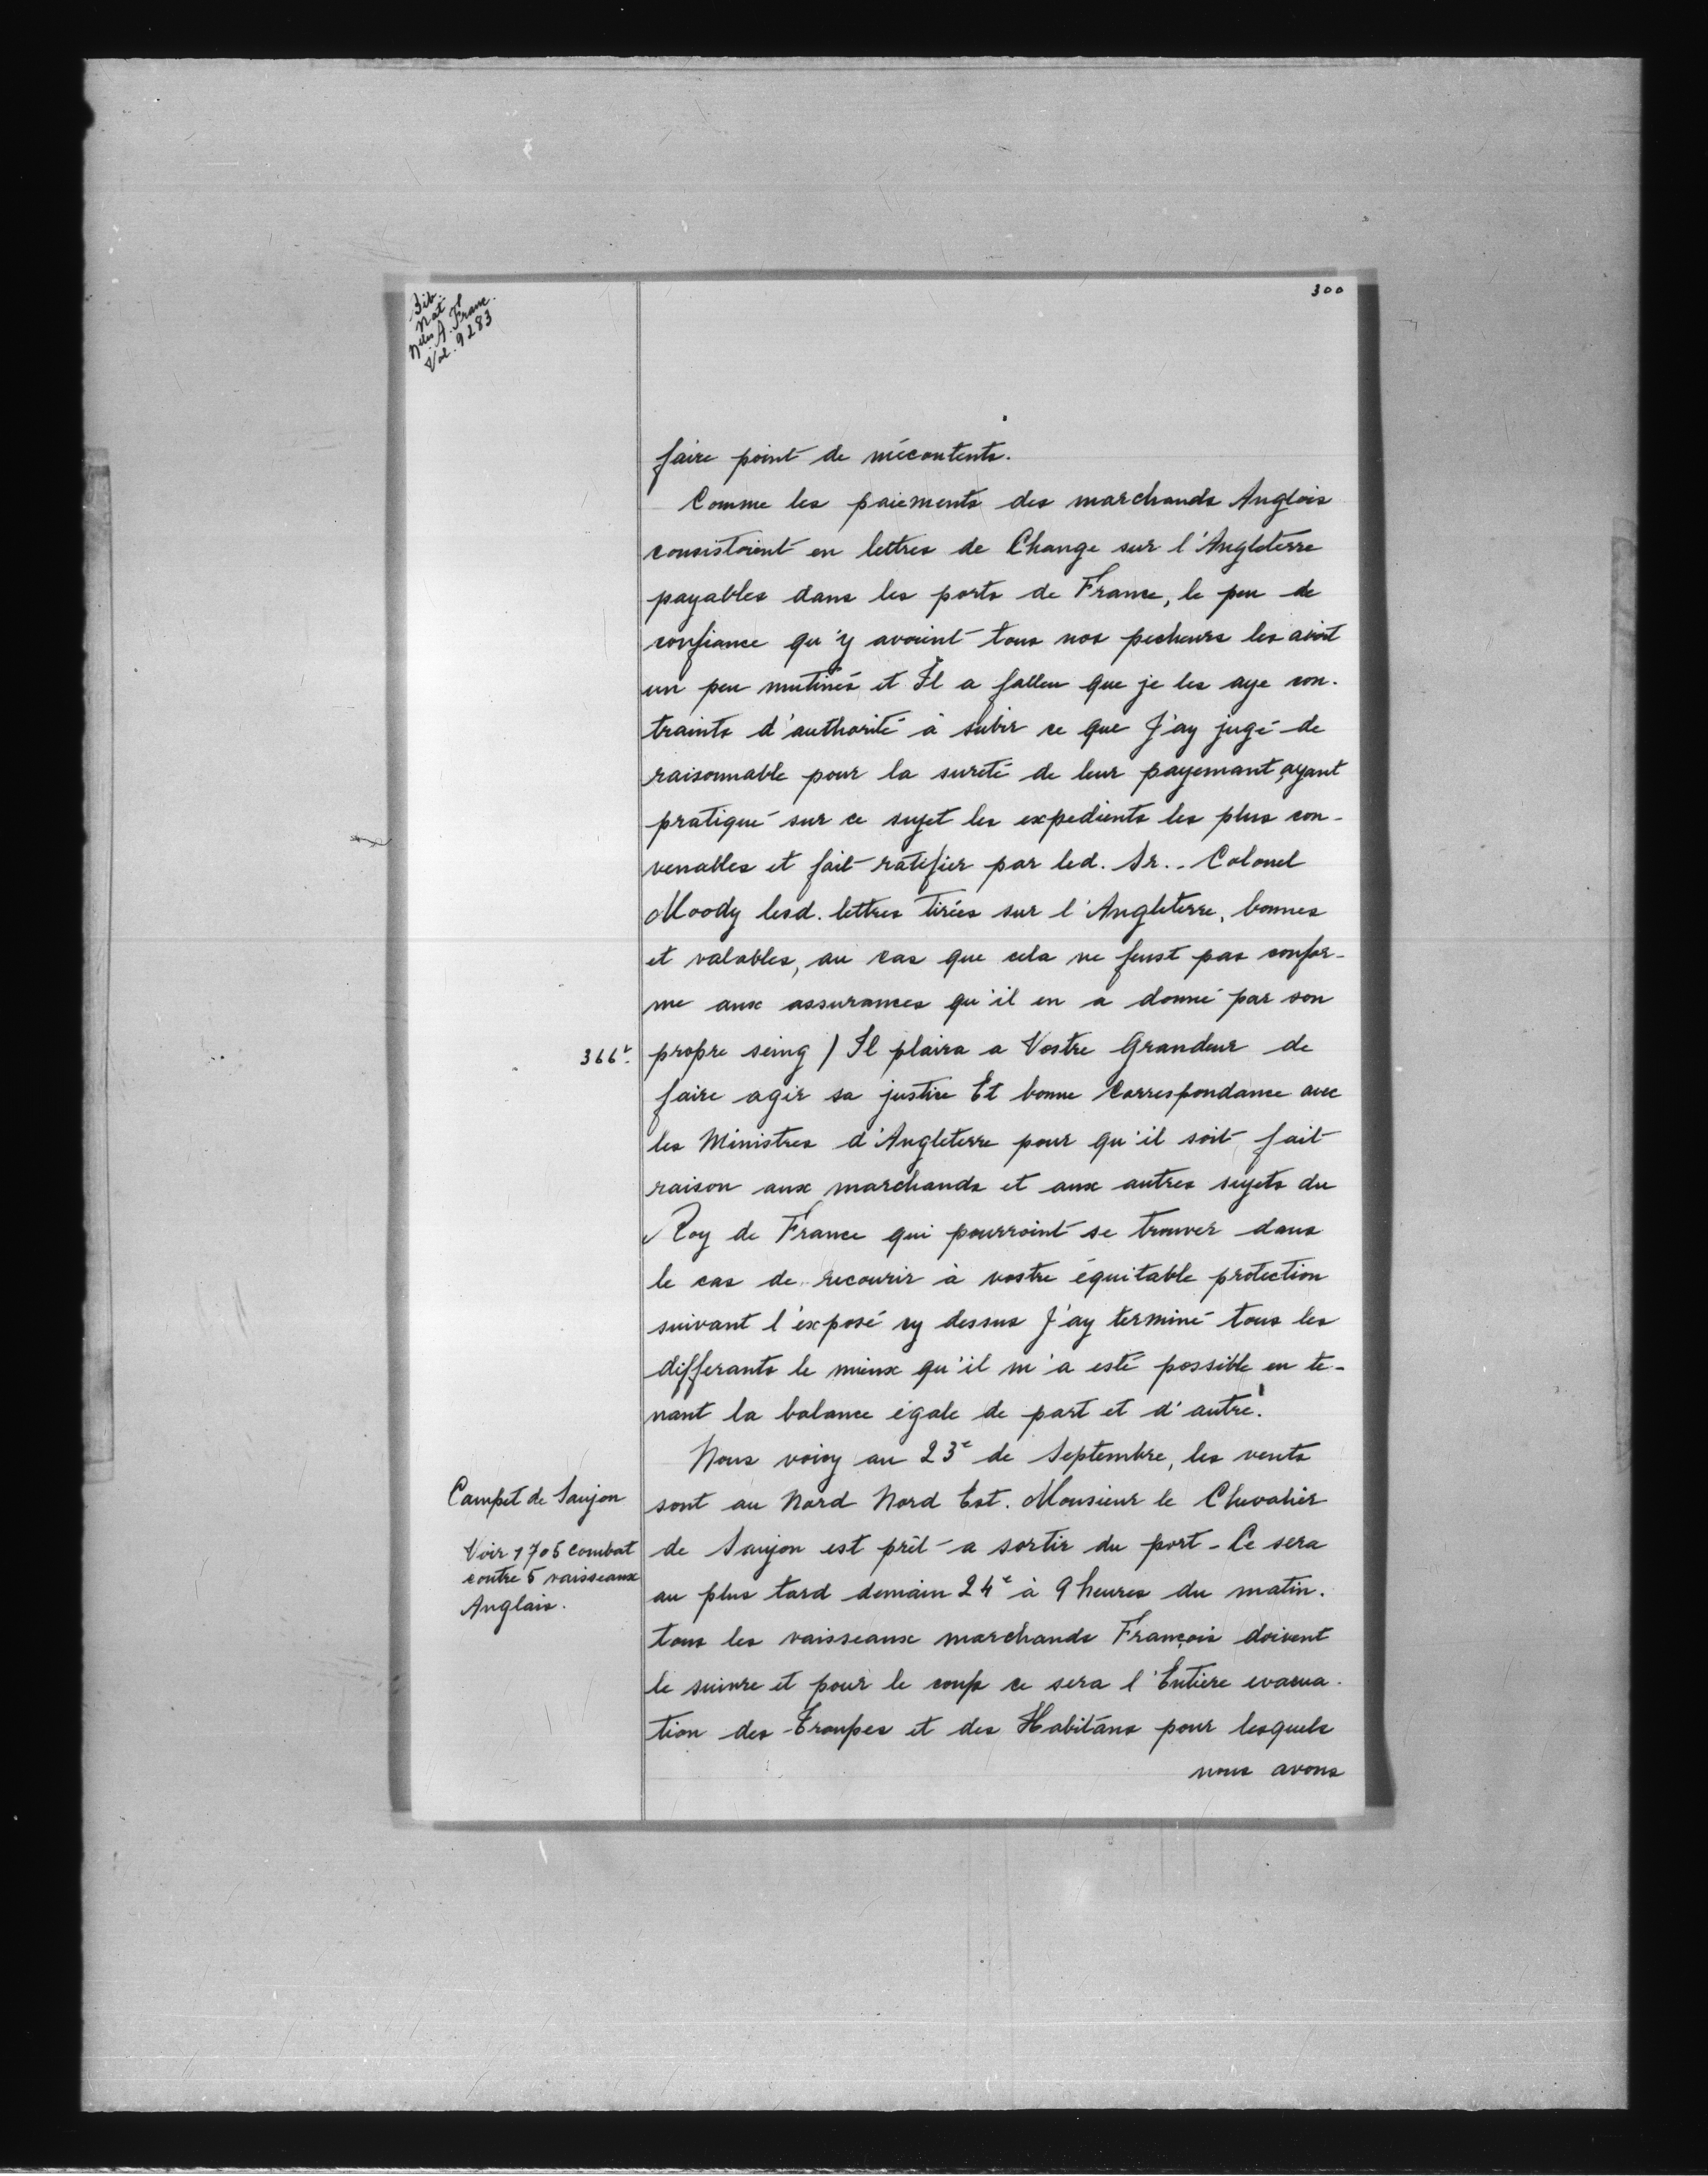 300
Bib.
Nat
Nlles A. Franc.
Vol. 9283
faire point de mécontents.
Comme les paiements des marchands Anglois
consistoient en lettres de Change sur l'Angleterre
payables dans les ports de France, le peu de
confiance qu'y avoient tous nos pecheurs les avoit
un peu mutinés et Il a falleu que je les aye con-
traints d'authorité à subir ce que J'ay jugé de
raisonnable pour la sureté de leur payemant, ayant
pratiqué sur ce sujet les expedients les plus con-
venables et fait ratifier par led. Sr. - Colonel
Moody lesd. lettres tirées sur l'Angleterre, bonnes
et valables, au cas que cela ne feust pas confor-
me aux assurances qu'il en a donné par son
366v. propre seing / Il plaira a Vostre Grandeur de
faire agir sa justice Et bonne Correspondance avec
les Ministres d'Angleterre pour qu'il soit fait
raison aux marchands et aux autres sujets du
Roy de France qui pourroint se trouver dans
le cas de recourir à vostre équitable protection
suivant l'exposé cy dessus J'ay terminé tous les
differants le mieux qu'il m'a esté possible en te-
nant la balance égale de part et d'autre.
Nous voicy au 23e de Septembre, les vents
sont au Nord Nord Est. Monsieur le Chevalier
de Saujon est prêt a sortir du port - Ce sera
au plus tard demain 24e à 9 heures du matin.
tous les vaisseaux marchands François doivent
le suivre et pour le coup ce sera l'Entiere evacua-
tion des Troupes et des Habitans pour lesquels
nous avons
Campet de Saujon
Voir 1705 combat
contre 5 vaisseaux
Anglais.